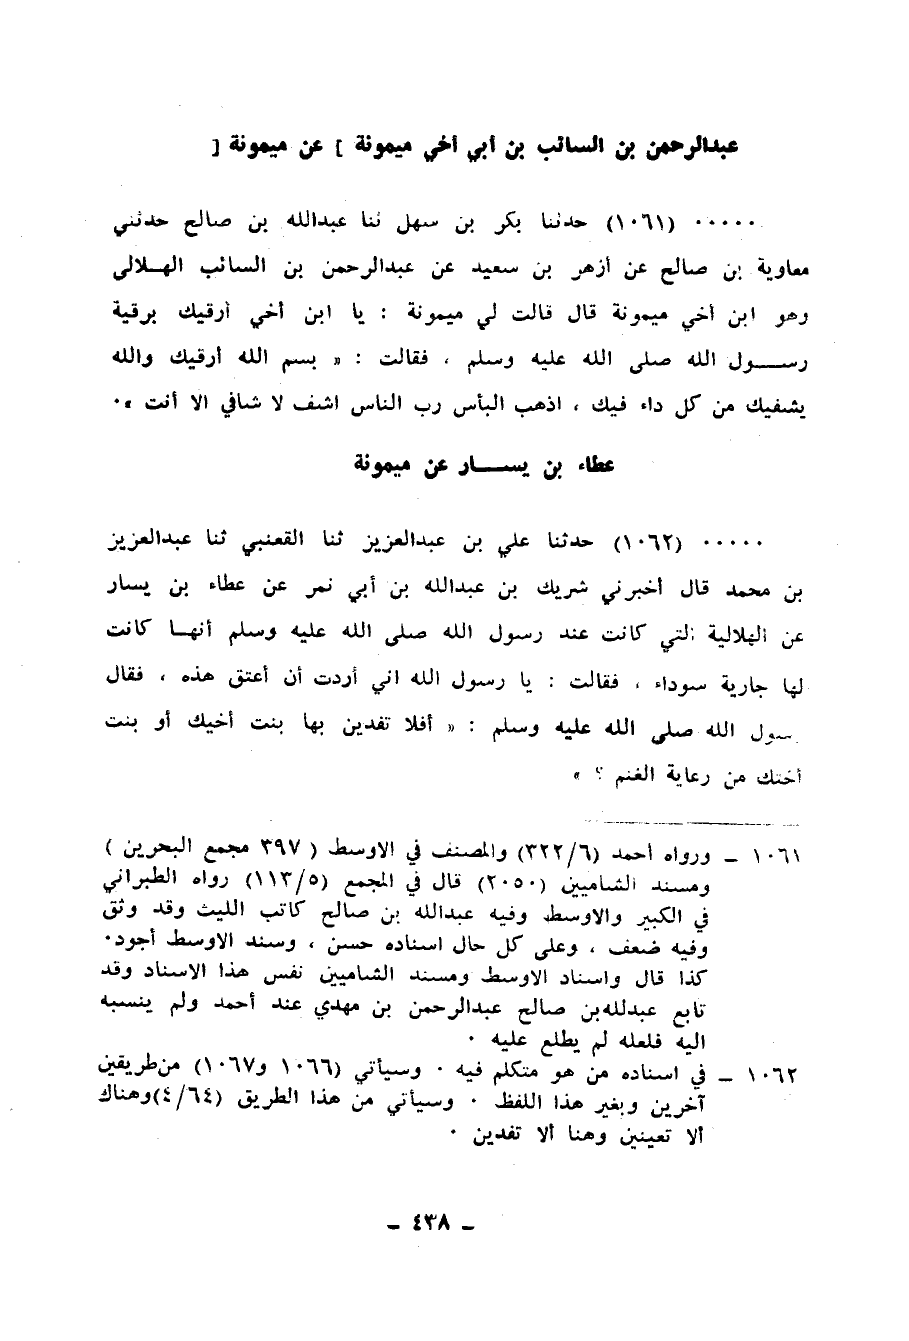 عبدالرحمن بن السائب بن أبي أخي ميمونة ] عن ميمونة [
..... (١٠٦١) حدثنا بكر بن سهل ثنا عبدالله بن صالح حدثني
معاوية بن صالح عن أزهر بن سعيد عن عبدالرحمن بن السائب الهـلالي
وهو ابن أخي ميمونة قال قالت لي ميمونة : يا ابن أخي أرقيك برقية
رســـول الله صلى الله عليه وسلم ، فقالت : « بسم الله أرقيك والله
يشفيك من كل داء فيك ، اذهب البأس رب الناس اشف لا شافي الا أنت » .
عطاء بن يســـار عن ميمونة
..... (١٠٦٢) حدثنا علي بن عبدالعزيز ثنا القعنبي ثنا عبدالعزيز
بن محمد قال أخبرني شريك بن عبدالله بن أبي نمر عن عطاء بن يسار
عن الهلالية التي كانت عند رسول الله صلى الله عليه وسلم أنهـا كانت
لها جارية سوداء ، فقالت : يا رسول الله اني أردت أن أعتق هذه ، فقال
سول الله صلى الله عليه وسلم : « أفلا تفدين بها بنت أخيك أو بنت
أختك من رعاية الغنم ؟ »
١٠٦١ ــ ورواه أحمد (٣٢٢/٦) والمصنف في الاوسط ( ٣٩٧ مجمع البحرين )
ومسند الشاميين (٢٠٥٠) قال في المجمع (١١٣/٥) رواه الطبراني
في الكبير والاوسط وفيه عبدالله بن صالح كاتب الليث وقد وثق
وفيه ضعف ، وعلى كل حال اسناده حسن ، وسند الاوسط أجود .
كذا قال واسناد الاوسط ومسند الشاميين نفس هذا الاسناد وقد
تابع عبدلله بن صالح عبدالرحمن بن مهدي عند أحمد ولم ينسبه
اليه فلعله لم يطلع عليه .
١٠٦٢ ــ في اسناده من هو متكلم فيه . وسيأتي (١٠٦٦ و١٠٦٧) من طريقين
آخرين وبغير هذا اللفظ . وسيأتي من هذا الطريق (٤/٦٤) وهناك
ألا تعينين وهنا ألا تفدين .
ــ ٤٣٨ ــ